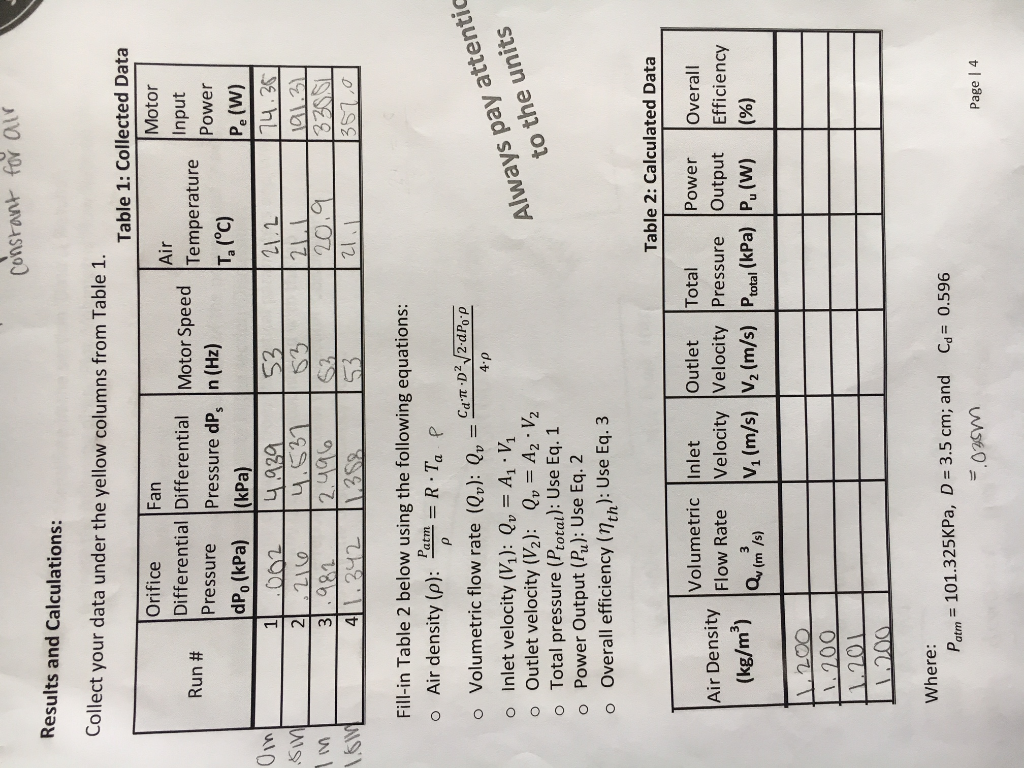 constant for air
Results and Calculations:
Collect your data under the yellow columns from Table 1.
Table 1: Collected Data
Run # | Orifice Differential Pressure dP₀ (kPa) | Fan Differential Pressure dPₛ (kPa) | Motor Speed n (Hz) | Air Temperature Tₐ (°C) | Motor Input Power Pₑ (W)
0m 1 .062 4.939 53 21.2
.5m 2 .216 53 21.1 191.31
1m 3 .982 2.496 53 20.9
1.5m 4 1.342 1.358 53 21.1 357.0
Fill-in Table 2 below using the following equations:
o Air density (ρ): Patm/ρ = R · Tₐ ρ
o Volumetric flow rate (Qᵥ): Qᵥ = Cd·π·D²√2·dP₀·ρ / 4·ρ
o Inlet velocity (V₁): Qᵥ = A₁ · V₁
o Outlet velocity (V₂): Qᵥ = A₂ · V₂
o Total pressure (Ptotal): Use Eq. 1
o Power Output (Pᵤ): Use Eq. 2
o Overall efficiency (ηth): Use Eq. 3
Always pay attentio
to the units
Table 2: Calculated Data
Air Density (kg/m³) | Volumetric Flow Rate Qᵥ (m³/s) | Inlet Velocity V₁ (m/s) | Outlet Velocity V₂ (m/s) | Total Pressure Ptotal (kPa) | Power Output Pᵤ (W) | Overall Efficiency (%)
1.200
1.200
1.201
1.200
Where:
Patm = 101.325KPa, D = 3.5 cm; and Cd = 0.596
Page | 4